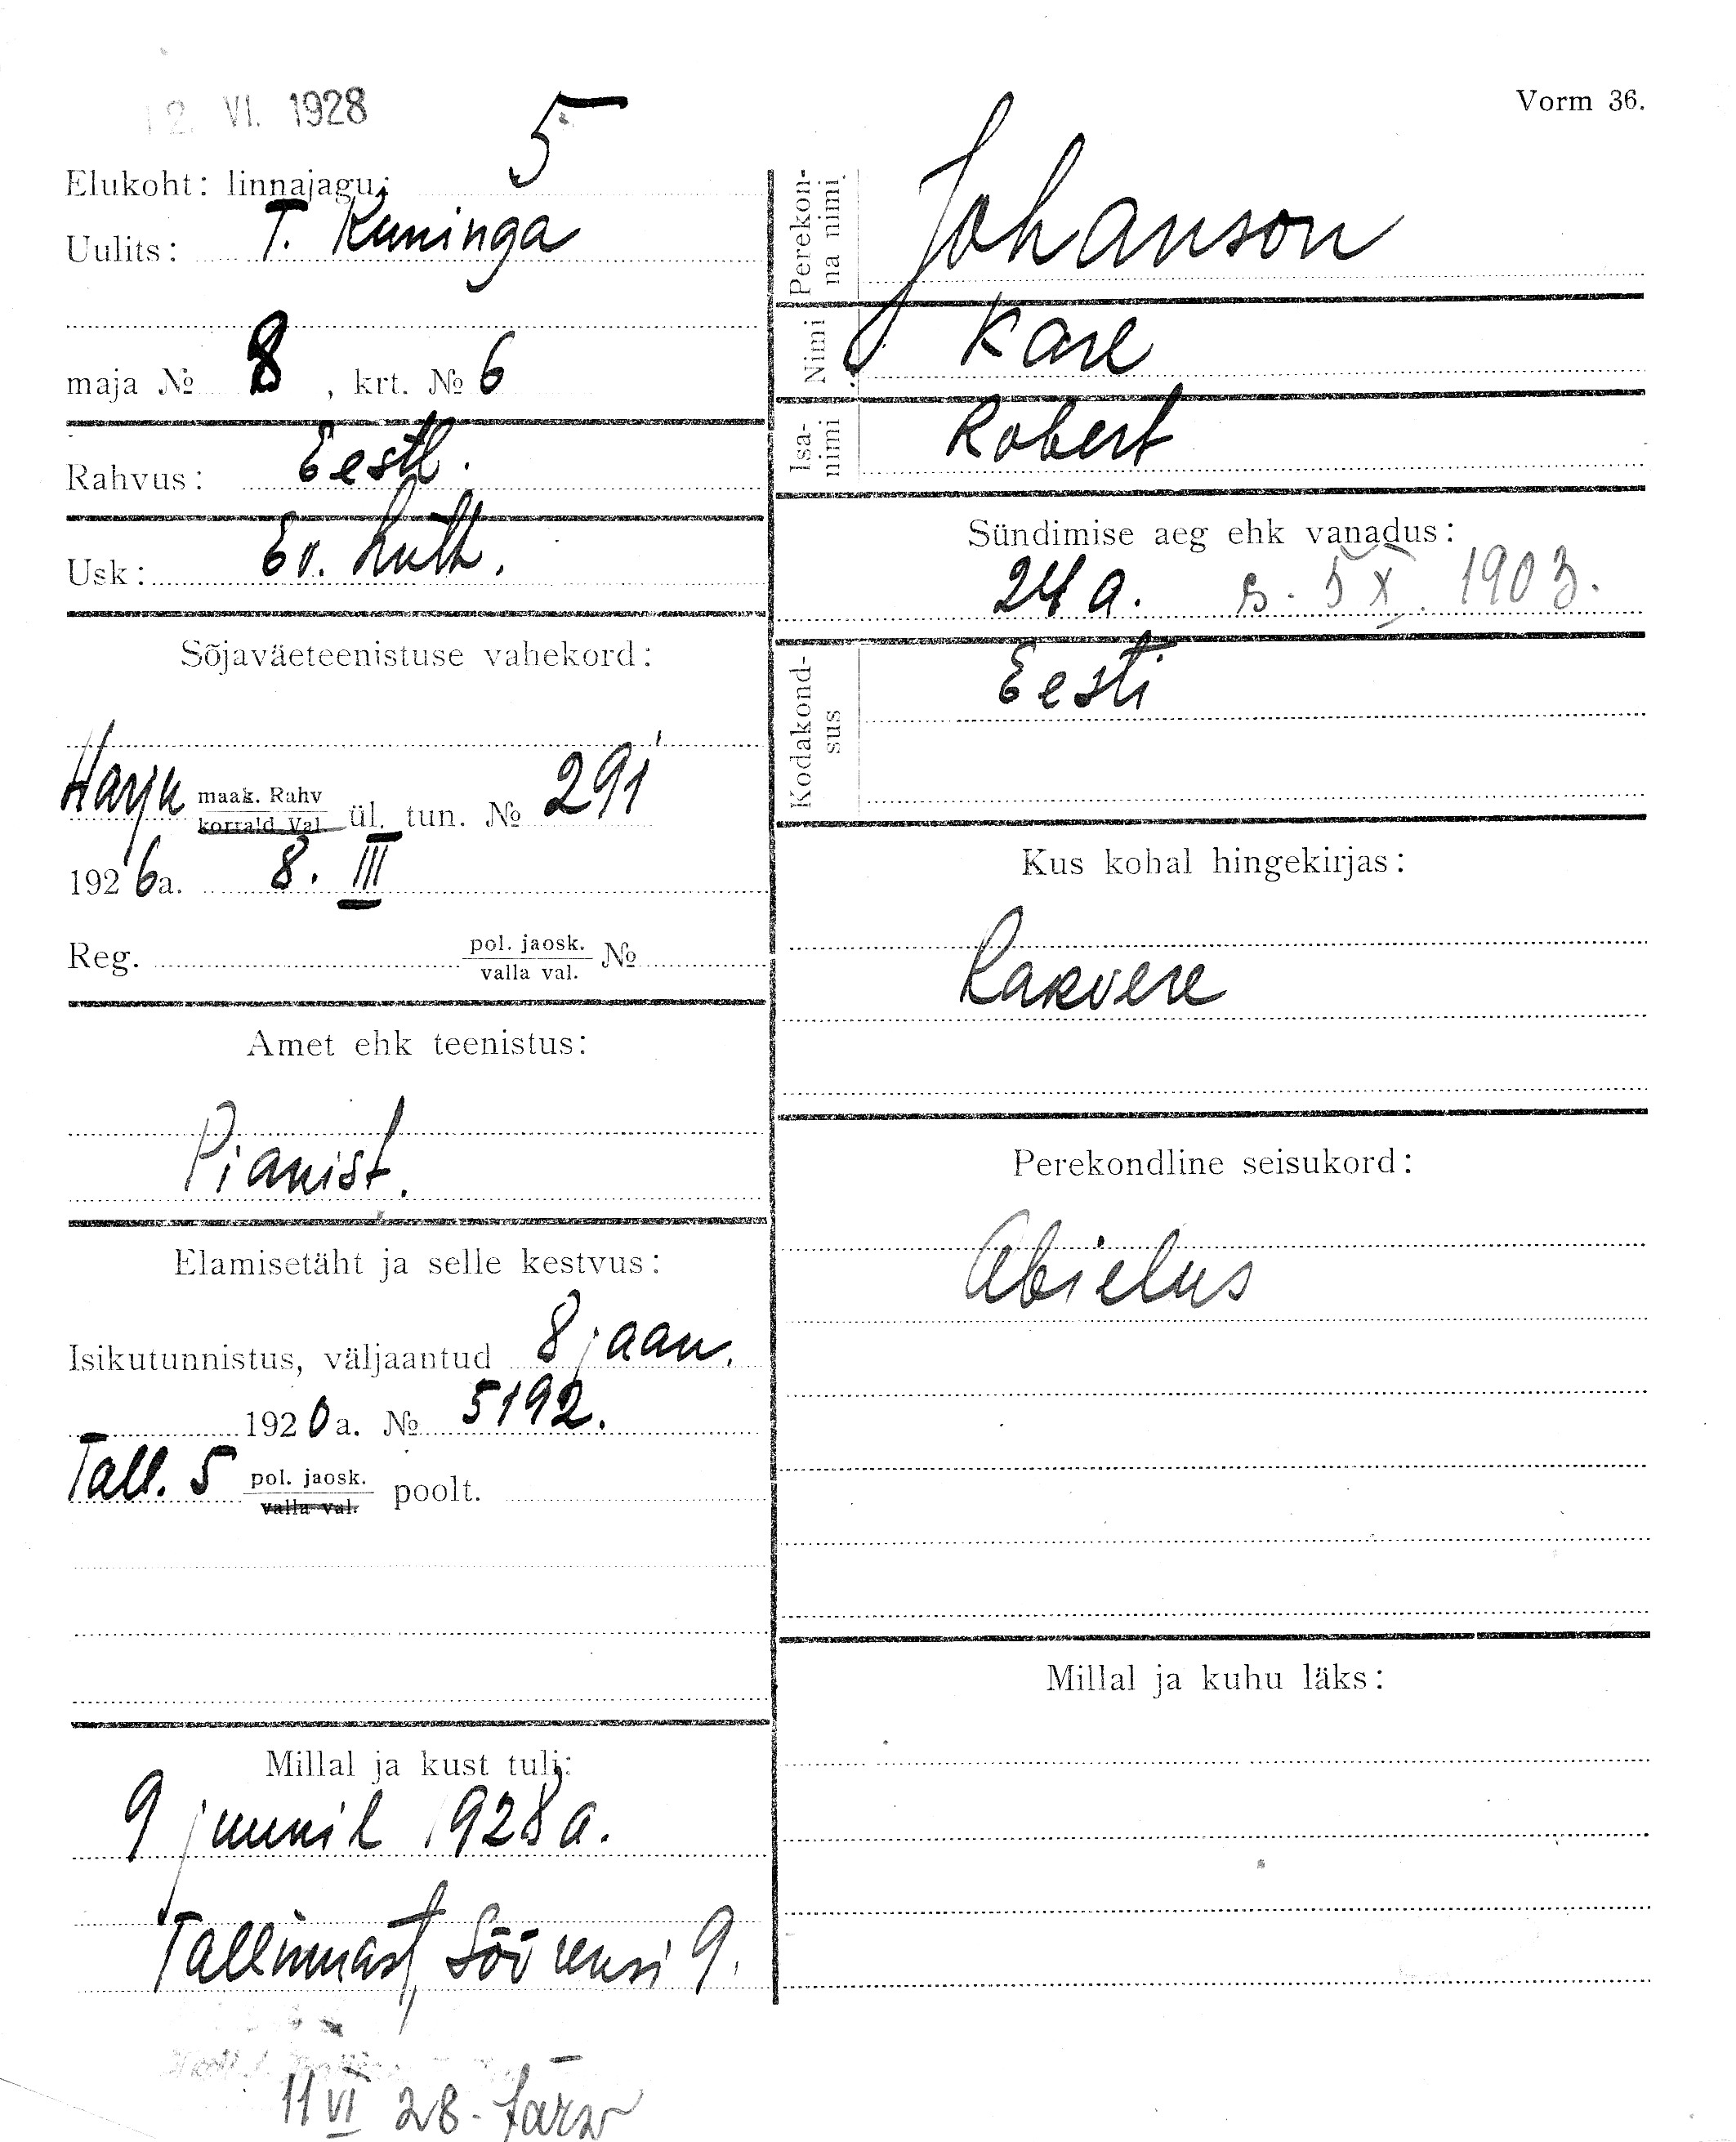 12. VI. 1928
Vorm 36.
Elukoht: linnajagu: 5
Uulits: T. Kuninga
maja № 8, krt. № 6
Rahvus: Eestl.
Usk: Ev. Luth.
Sõjaväeteenistuse vahekord:
Harju maak. Rahv
korrald Val ül. tun. № 291
1926a. 8. III
Reg. pol. jaosk.
valla val. №
Amet ehk teenistus:
Pianist.
Elamisetäht ja selle kestvus:
Isikutunnistus, väljaantud 8 jaan.
1920a. № 5192.
Tall. 5 pol. jaosk.
valla val. poolt.
Millal ja kust tuli:
9 juunil 1928 a.
Tallinnast, Söö 9.
11 VI 28.
Perekon-
na nimi Johanson
Nimi Karl
Isa-
nimi Robert
Sündimise aeg ehk vanadus:
24 a. s. 5 X. 1903.
Kodakond-
sus Eesti
Kus kohal hingekirjas:
Rakvere
Perekondline seisukord:
Abielus
Millal ja kuhu läks: